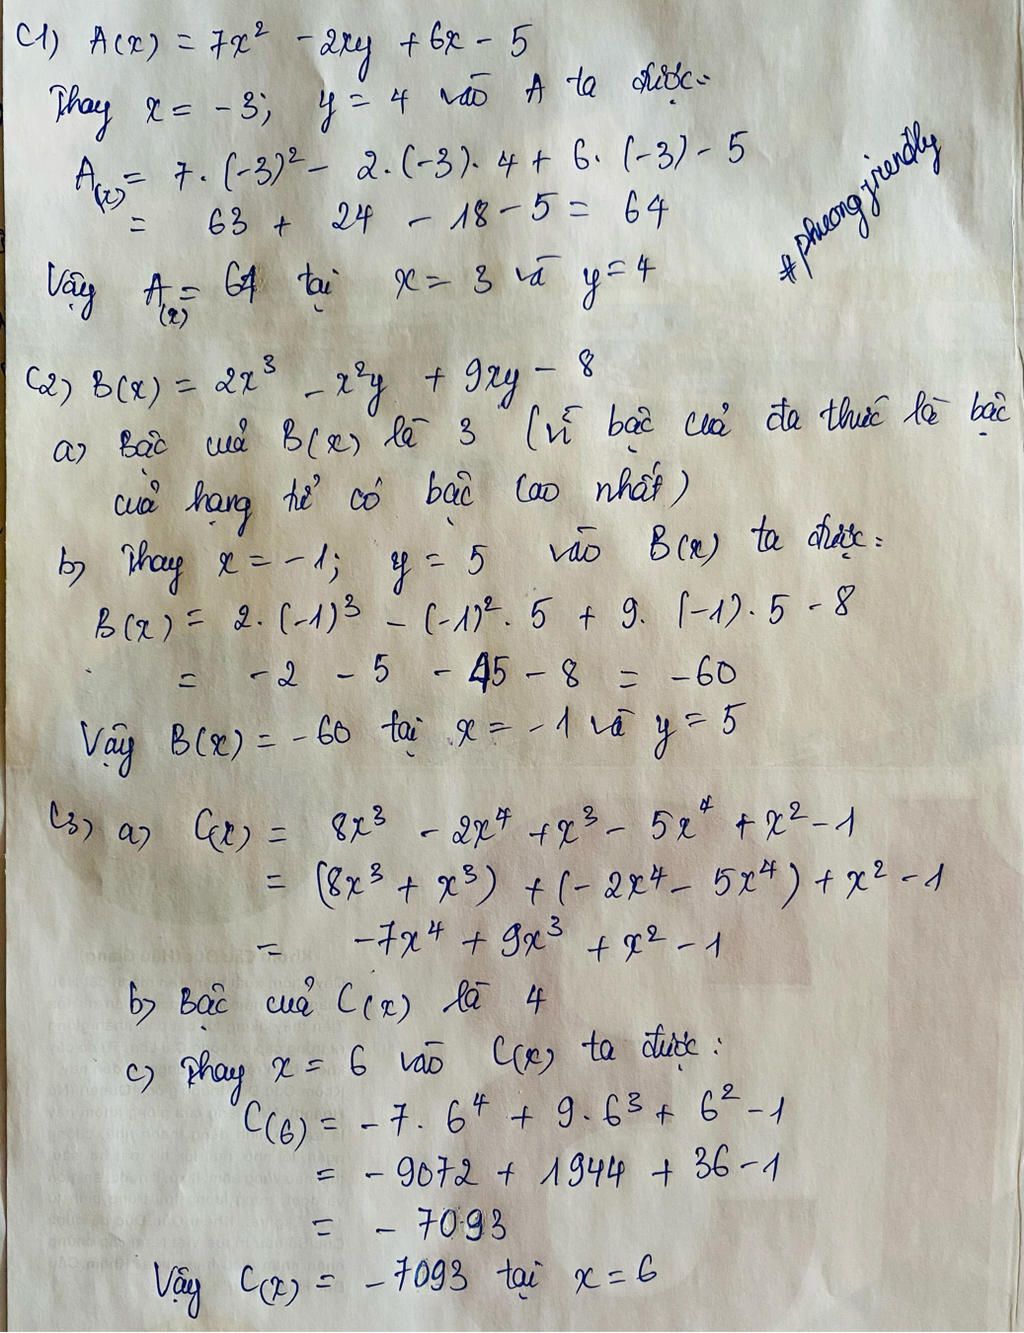 C1) A(x) = 7x² - 2xy + 6x - 5
Thay x = -3; y = 4 vào A ta được:
A(x) = 7.(-3)² - 2.(-3).4 + 6.(-3) - 5
= 63 + 24 - 18 - 5 = 64
#phuongfriendly
Vậy A(x) = 64 tại x = 3 và y = 4
C2) B(x) = 2x³ - x²y + 9xy - 8
a) Bậc của B(x) là 3 (vì bậc của đa thức là bậc
của hạng tử có bậc cao nhất)
b) Thay x = -1; y = 5 vào B(x) ta được:
B(x) = 2.(-1)³ - (-1)².5 + 9.(-1).5 - 8
= -2 - 5 - 45 - 8 = -60
Vậy B(x) = -60 tại x = -1 và y = 5
C3) a) C(x) = 8x³ - 2x⁴ + x³ - 5x⁴ + x² - 1
= (8x³ + x³) + (-2x⁴ - 5x⁴) + x² - 1
= -7x⁴ + 9x³ + x² - 1
b) Bậc của C(x) là 4
c) Thay x = 6 vào C(x) ta được:
C(6) = -7.6⁴ + 9.6³ + 6² - 1
= -9072 + 1944 + 36 - 1
= -7093
Vậy C(x) = -7093 tại x = 6